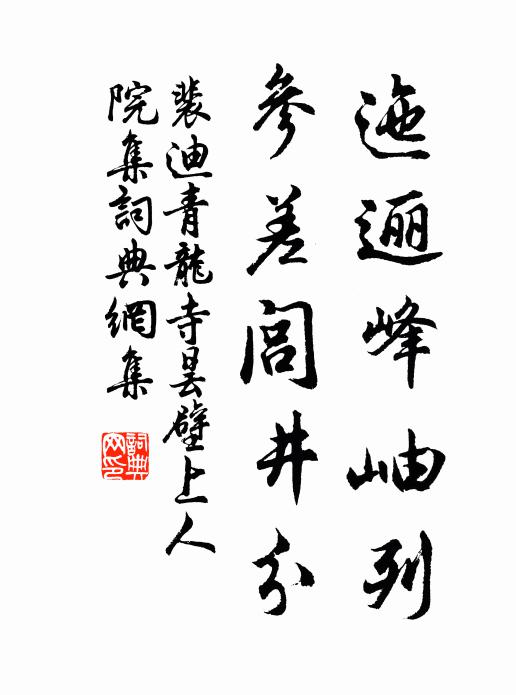 迤逦峰岫列
參差閭井分
裴迪青龍寺曇壁上人
院集詞典網集
詞典網印